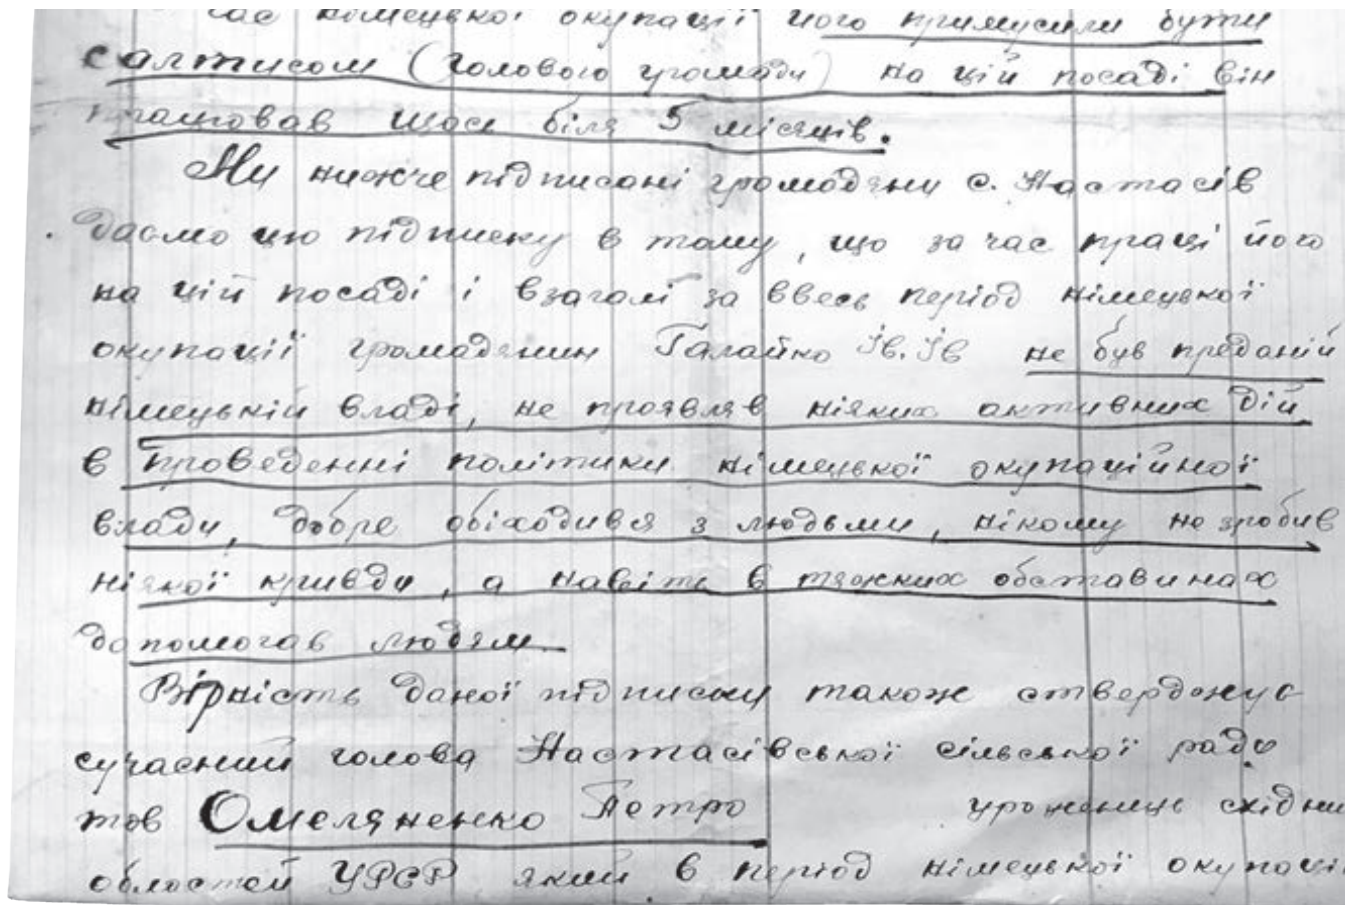 час німецької окупації його примусили бути
салтисом (головою громади) на цій посаді він
працював щось біля 5 місяців.
Ми нижче підписані громадяни с. Настасів
даємо цю підписку в тому, що за час праці його
на цій посаді і взагалі за ввесь період німецької
окупації громадянин Галайко Ів. Ів не був преданій
німецькій владі, не проявляв ніяких активних дій
в проведенні політики німецької окупаційної
влади, добре обіходився з людьми, нікому не зробив
ніякої кривди, а навіть в тяжких обставинах
допомогав людям
Вірність даної підписки також стверджує
сучасний голова Настасівської сільської ради
тов Омеляненко Петро уроженець східни
областей УРСР який в період німецької окупації